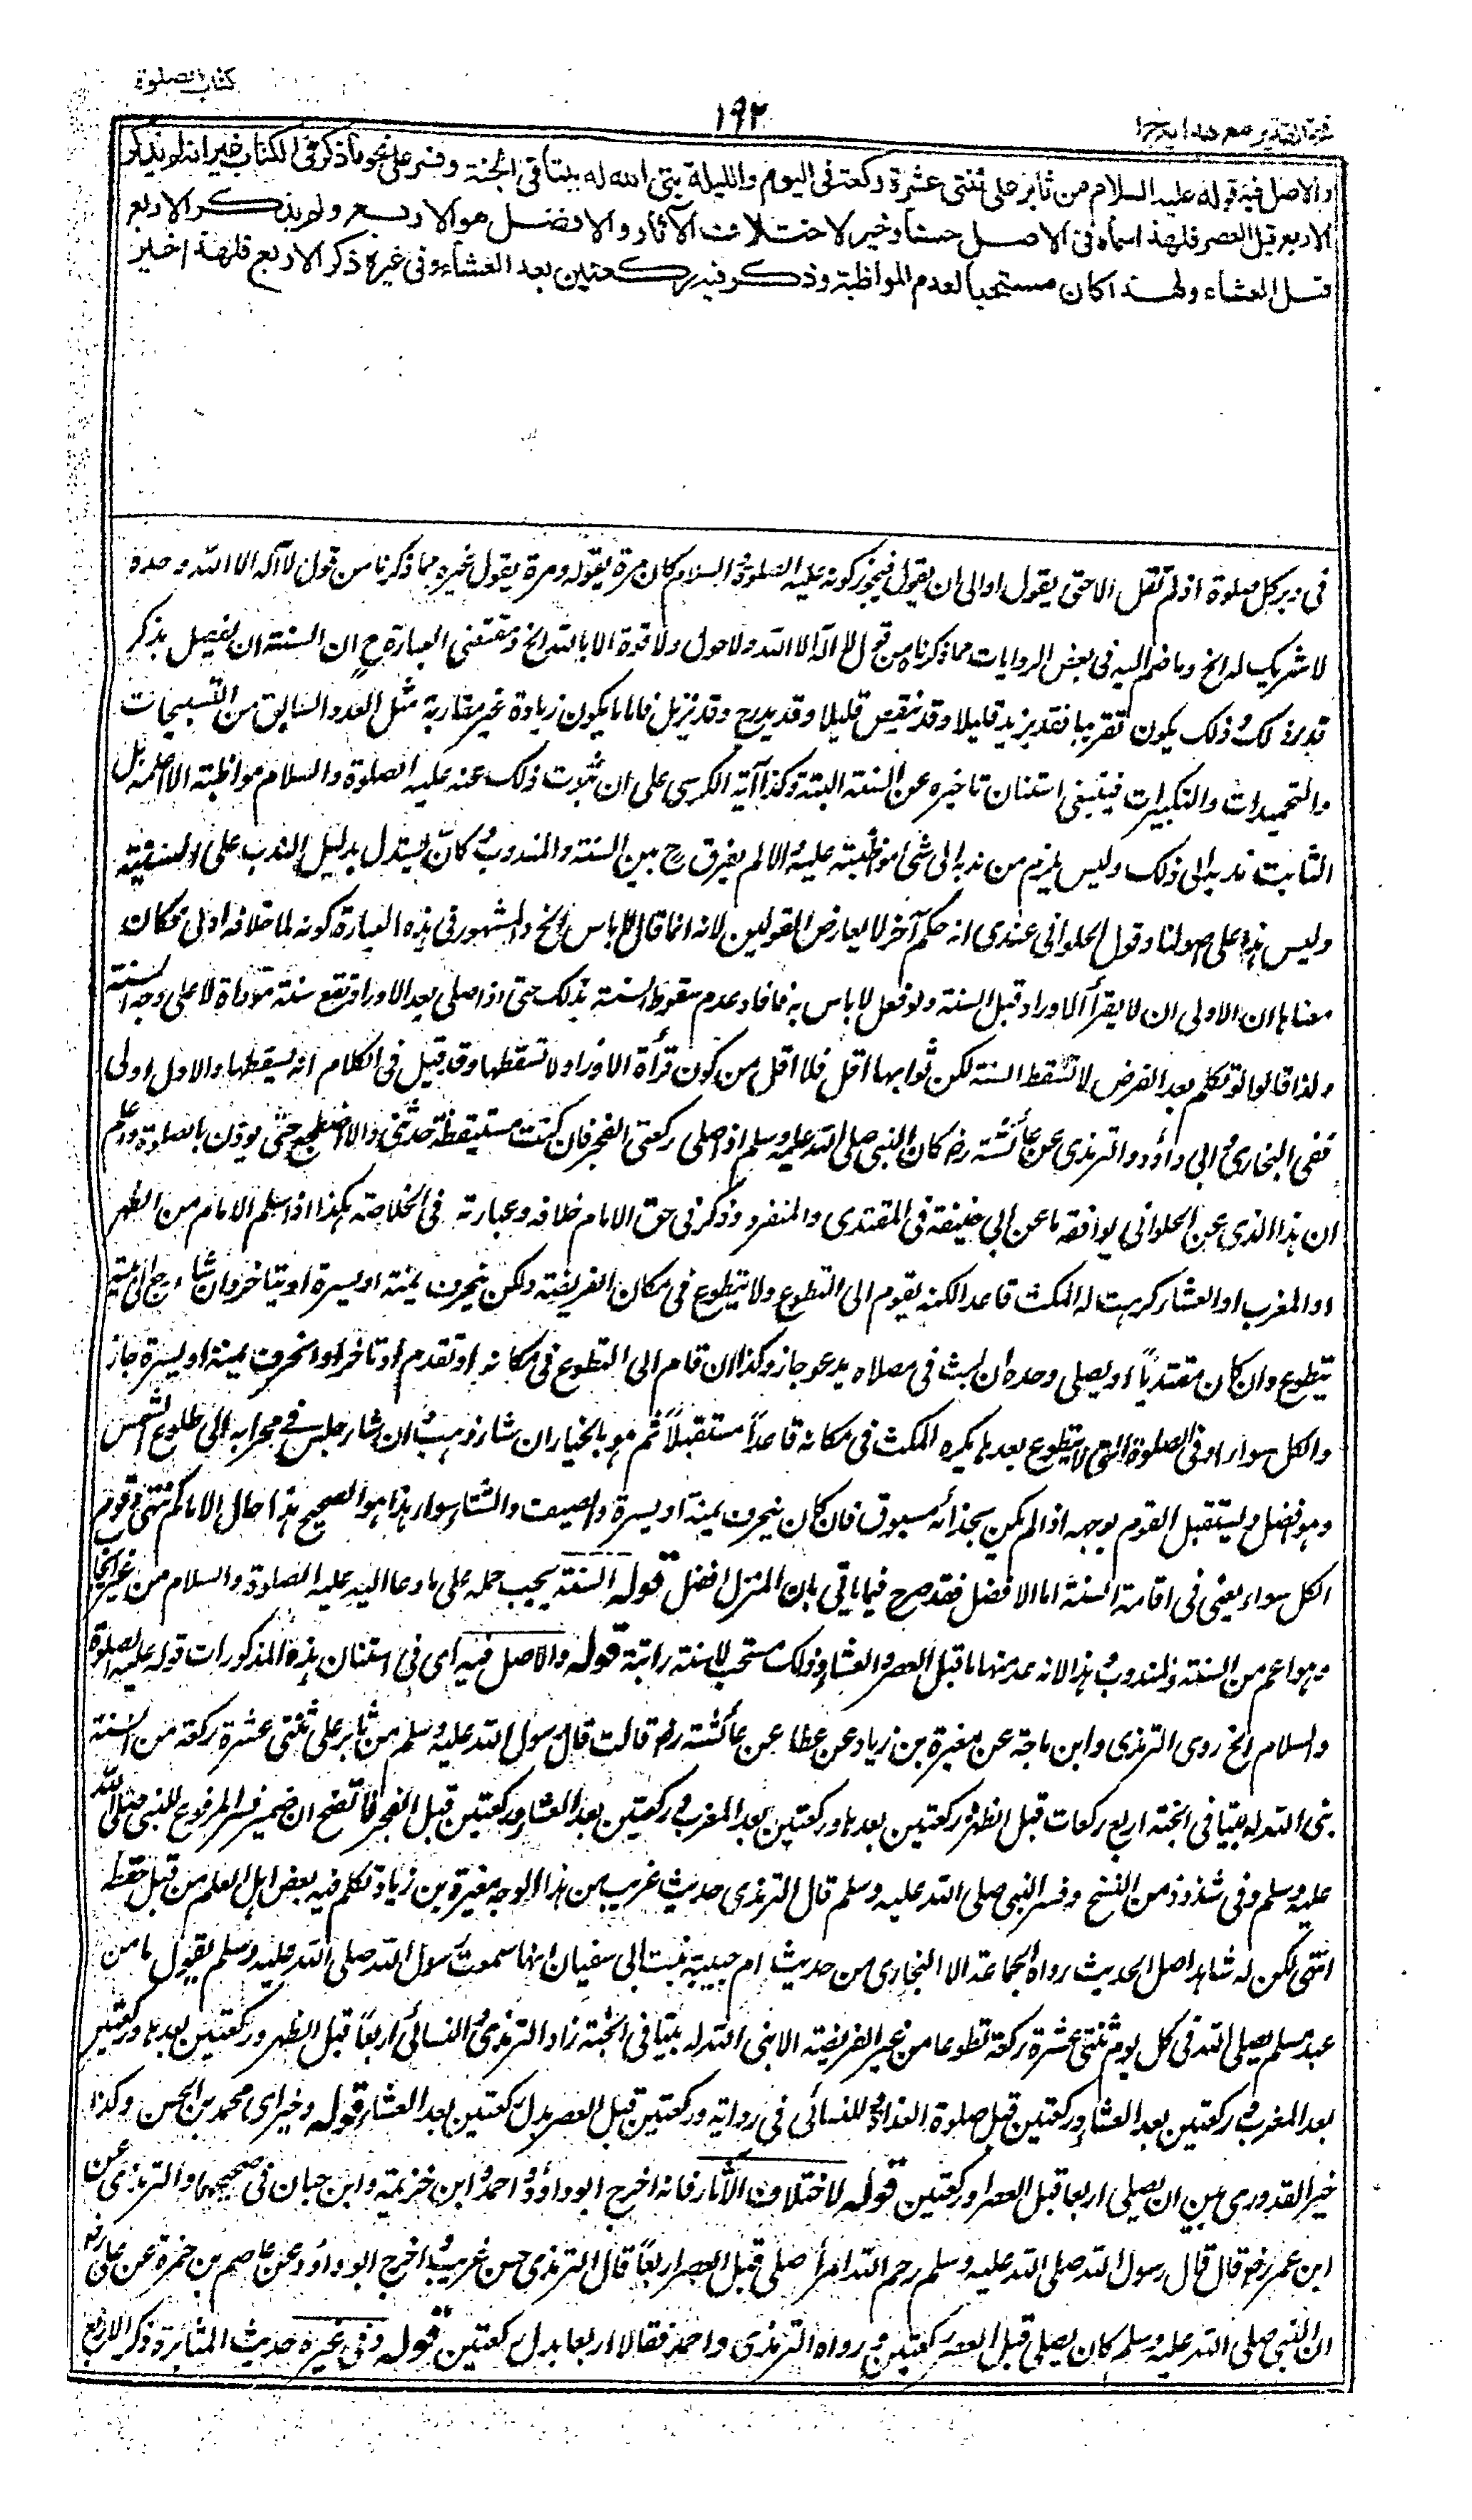 كتاب الصلوة
١٩٢
فتح القدير مع هدايه ج١
والاصل فيه قوله عليه السلام من ثابر على ثنتى عشرة ركعة فى اليوم والليلة بنى الله له بيتا فى الجنة وفسر على نحو ما ذكر فى الكتاب غير انه لم يذكر
الاربع قبل العصر فلهذا سماه فى الاصل حسنا وخير لاختلاف الآثار والافضل هو الاربع ولم يذكر الاربع
قبل العشاء ولهذا كان مستحبا لعدم المواظبة وذكر فيه ركعتين بعد العشاء وفى غيره ذكر الاربع فلهذا خير
فى دبر كل صلوة اذ لم تقل الا حتى يقول او الى ان يقول فيجوز كونه عليه الصلوة والسلام كان مرة يقوله ومرة يقول غيره مما ذكرنا من قول لا اله الا الله وحده
لا شريك له الخ وما ضم اليه فى بعض الروايات مما ذكرناه من قول لا اله الا الله ولا حول ولا قوة الا بالله الخ ومقتضى العبارة ح ان السنة ان يفصل بذكر
قدر ذلك وذلك يكون تقريبا فقد يزيد قليلا وقد ينقص قليلا وقد يدرج وقد يرتل فاما ما يكون زيادة غير مقاربة مثل العدد السابق من التسبيحات
والتحميدات والتكبيرات فينبغى استنان تاخيره عن السنة البتة وكذا آية الكرسى على ان ثبوت ذلك عنه عليه الصلوة والسلام مواظبته لا اعلمه بل
الثابت ندبه الى ذلك وليس يلزم من ندبه الى شئ مواظبته عليه والا لم يفرق ح بين السنة والمندوب وكان يستدل بدليل الندب على السنية
وليس هذا على اصولنا وقول الحلوانى عندى انه حكم آخر لا يعارض القولين لانه انما قال لا باس الخ والمشهور فى هذه العبارة كونه لما خلافه اولى فكان
معناها ان الاولى ان لا يقرأ الاوراد قبل السنة ولو فعل لا باس به فافاد عدم سقوط السنة بذلك حتى اذا صلى بعد الاوراد تقع سنة مؤداة لا على وجه السنة
ولذا قالوا لو تكلم بعد الفرض لا تسقط السنة لكن ثوابها اقل فلا اقل من كون قرأة الاوراد لا تسقطها وقد قيل فى الكلام انه يسقطها والاول اولى
ففى البخارى وابى داؤد والترمذى عن عائشة رض كان النبى صلى الله عليه وسلم اذا صلى ركعتى الفجر فان كنت مستيقظة حدثنى والا اضطجع حتى يوذن بالصلوة واعلم
ان هذا الذى عن الحلوانى يوافقه ما عن ابى حنيفة فى المقتدى والمنفرد وذكر فى حق الامام خلافه وعبارته فى الخلاصة هكذا اذا سلم الامام من الظهر
او المغرب او العشاء كرهت له المكث قاعدا لكنه يقوم الى التطوع ولا يتطوع فى مكان الفريضة ولكن ينحرف يمنة او يسرة او يتاخر وان شاء رجع الى بيته
يتطوع وان كان مقتديا او يصلى وحده ان لبث فى مصلاه يدعو جاز وكذا ان قام الى التطوع فى مكانه او تقدم او تاخر او انحرف يمينة او يسرة جاز
والكل سواء وفى الصلوة التى لا يتطوع بعدها يكره المكث فى مكانه قاعدا مستقبلا ثم هو بالخيار ان شاء ذهب وان شاء جلس فى محرابه الى طلوع الشمس
وهو افضل ويستقبل القوم بوجهه اذا لم يكن بحذائه مسبوق فان كان ينحرف يمنة او يسرة والصيف والشتاء سواء هذا هو الصحيح هذا حال الامام انتهى وقولهم
الكل سواء يعنى فى اقامة السنة اما الافضل فقد صرح فيما ياتى بان المنزل افضل قوله السنة يجب حمله على ما دعا اليه عليه الصلوة والسلام من غير ايجاب
وهو اعم من السنة والمندوب وهذا لانه عد منها ما قبل العصر والعشاء وذلك مستحب لا سنة راتبة قوله والاصل فيه اى فى استنان هذه المذكورات قوله عليه الصلوة
والسلام الخ روى الترمذى وابن ماجة عن مغيرة بن زياد عن عطا عن عائشة رض قالت قال رسول الله صلى الله عليه وسلم من ثابر على ثنتى عشرة ركعة من السنة
بنى الله له بيتا فى الجنة اربع ركعات قبل الظهر وركعتين بعدها وركعتين بعد المغرب وركعتين بعد العشاء وركعتين قبل الفجر فاتضح ان ضمير فسر المرفوع للنبى صلى الله
عليه وسلم وفى شذوذ من النسخ وفسر النبى صلى الله عليه وسلم قال الترمذى حديث غريب من هذا الوجه مغيرة بن زياد تكلم فيه بعض اهل العلم من قبل حفظه
انتهى لكن له شاهد اصل الحديث رواه الجماعة الا البخارى من حديث ام حبيبة بنت ابى سفيان انها سمعت رسول الله صلى الله عليه وسلم يقول ما من
عبد مسلم يصلى لله فى كل يوم ثنتى عشرة ركعة تطوعا من غير الفريضة الا بنى الله له بيتا فى الجنة زاد الترمذى والنسائى اربعا قبل الظهر وركعتين بعدها وركعتين
بعد المغرب وركعتين بعد العشاء وركعتين قبل صلوة الغداة وللنسائى فى رواية وركعتين قبل العصر بدل ركعتين بعد العشاء قوله وخير اى محمد بن الحسن وكذا
خير القدورى بين ان يصلى اربعا قبل العصر او ركعتين قوله لاختلاف الآثار فانه اخرج ابو داؤد واحمد وابن خزيمة وابن حبان فى صحيحيهما والترمذى عن
ابن عمر رض قال قال رسول الله صلى الله عليه وسلم رحم الله امرأ صلى قبل العصر اربعا قال الترمذى حسن غريب واخرج ابو داؤد عن عاصم بن ضمرة عن على رض
ان النبى صلى الله عليه وسلم كان يصلى قبل العصر ركعتين ورواه الترمذى واحمد فقالا اربعا بدل ركعتين قوله وفى غيره حديث المثابرة ذكر الاربع